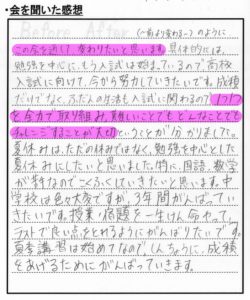 ・会を聞いた感想
Before After (～前より変わる～)のように
この会を通して変わりたいと思います。具体的には、
勉強を中心に、もう入試は始まっているので高校
入試に向けて、今から努力していきたいです。成績
だけでなく、ふだんの生活も入試に関わるので
を全力で取り組み、難しいことでもどんなことでも
ちゃんとこなすことが大切ということが分かりました。
夏休みは、ただの休みではなく、勉強を中心とした
夏休みにしたいと思いました。特に、国語、数学
が苦手なのでこくふくしていきたいと思います。中
学校は色々大変ですが、3年間がんばってい
きたいです。授業、宿題を一生けん命やって、
テストで良い点をとれるようにがんばりたいです。
夏季講習は始めてなので、しんちょうに、成績
をあげるためにがんばっていきます。